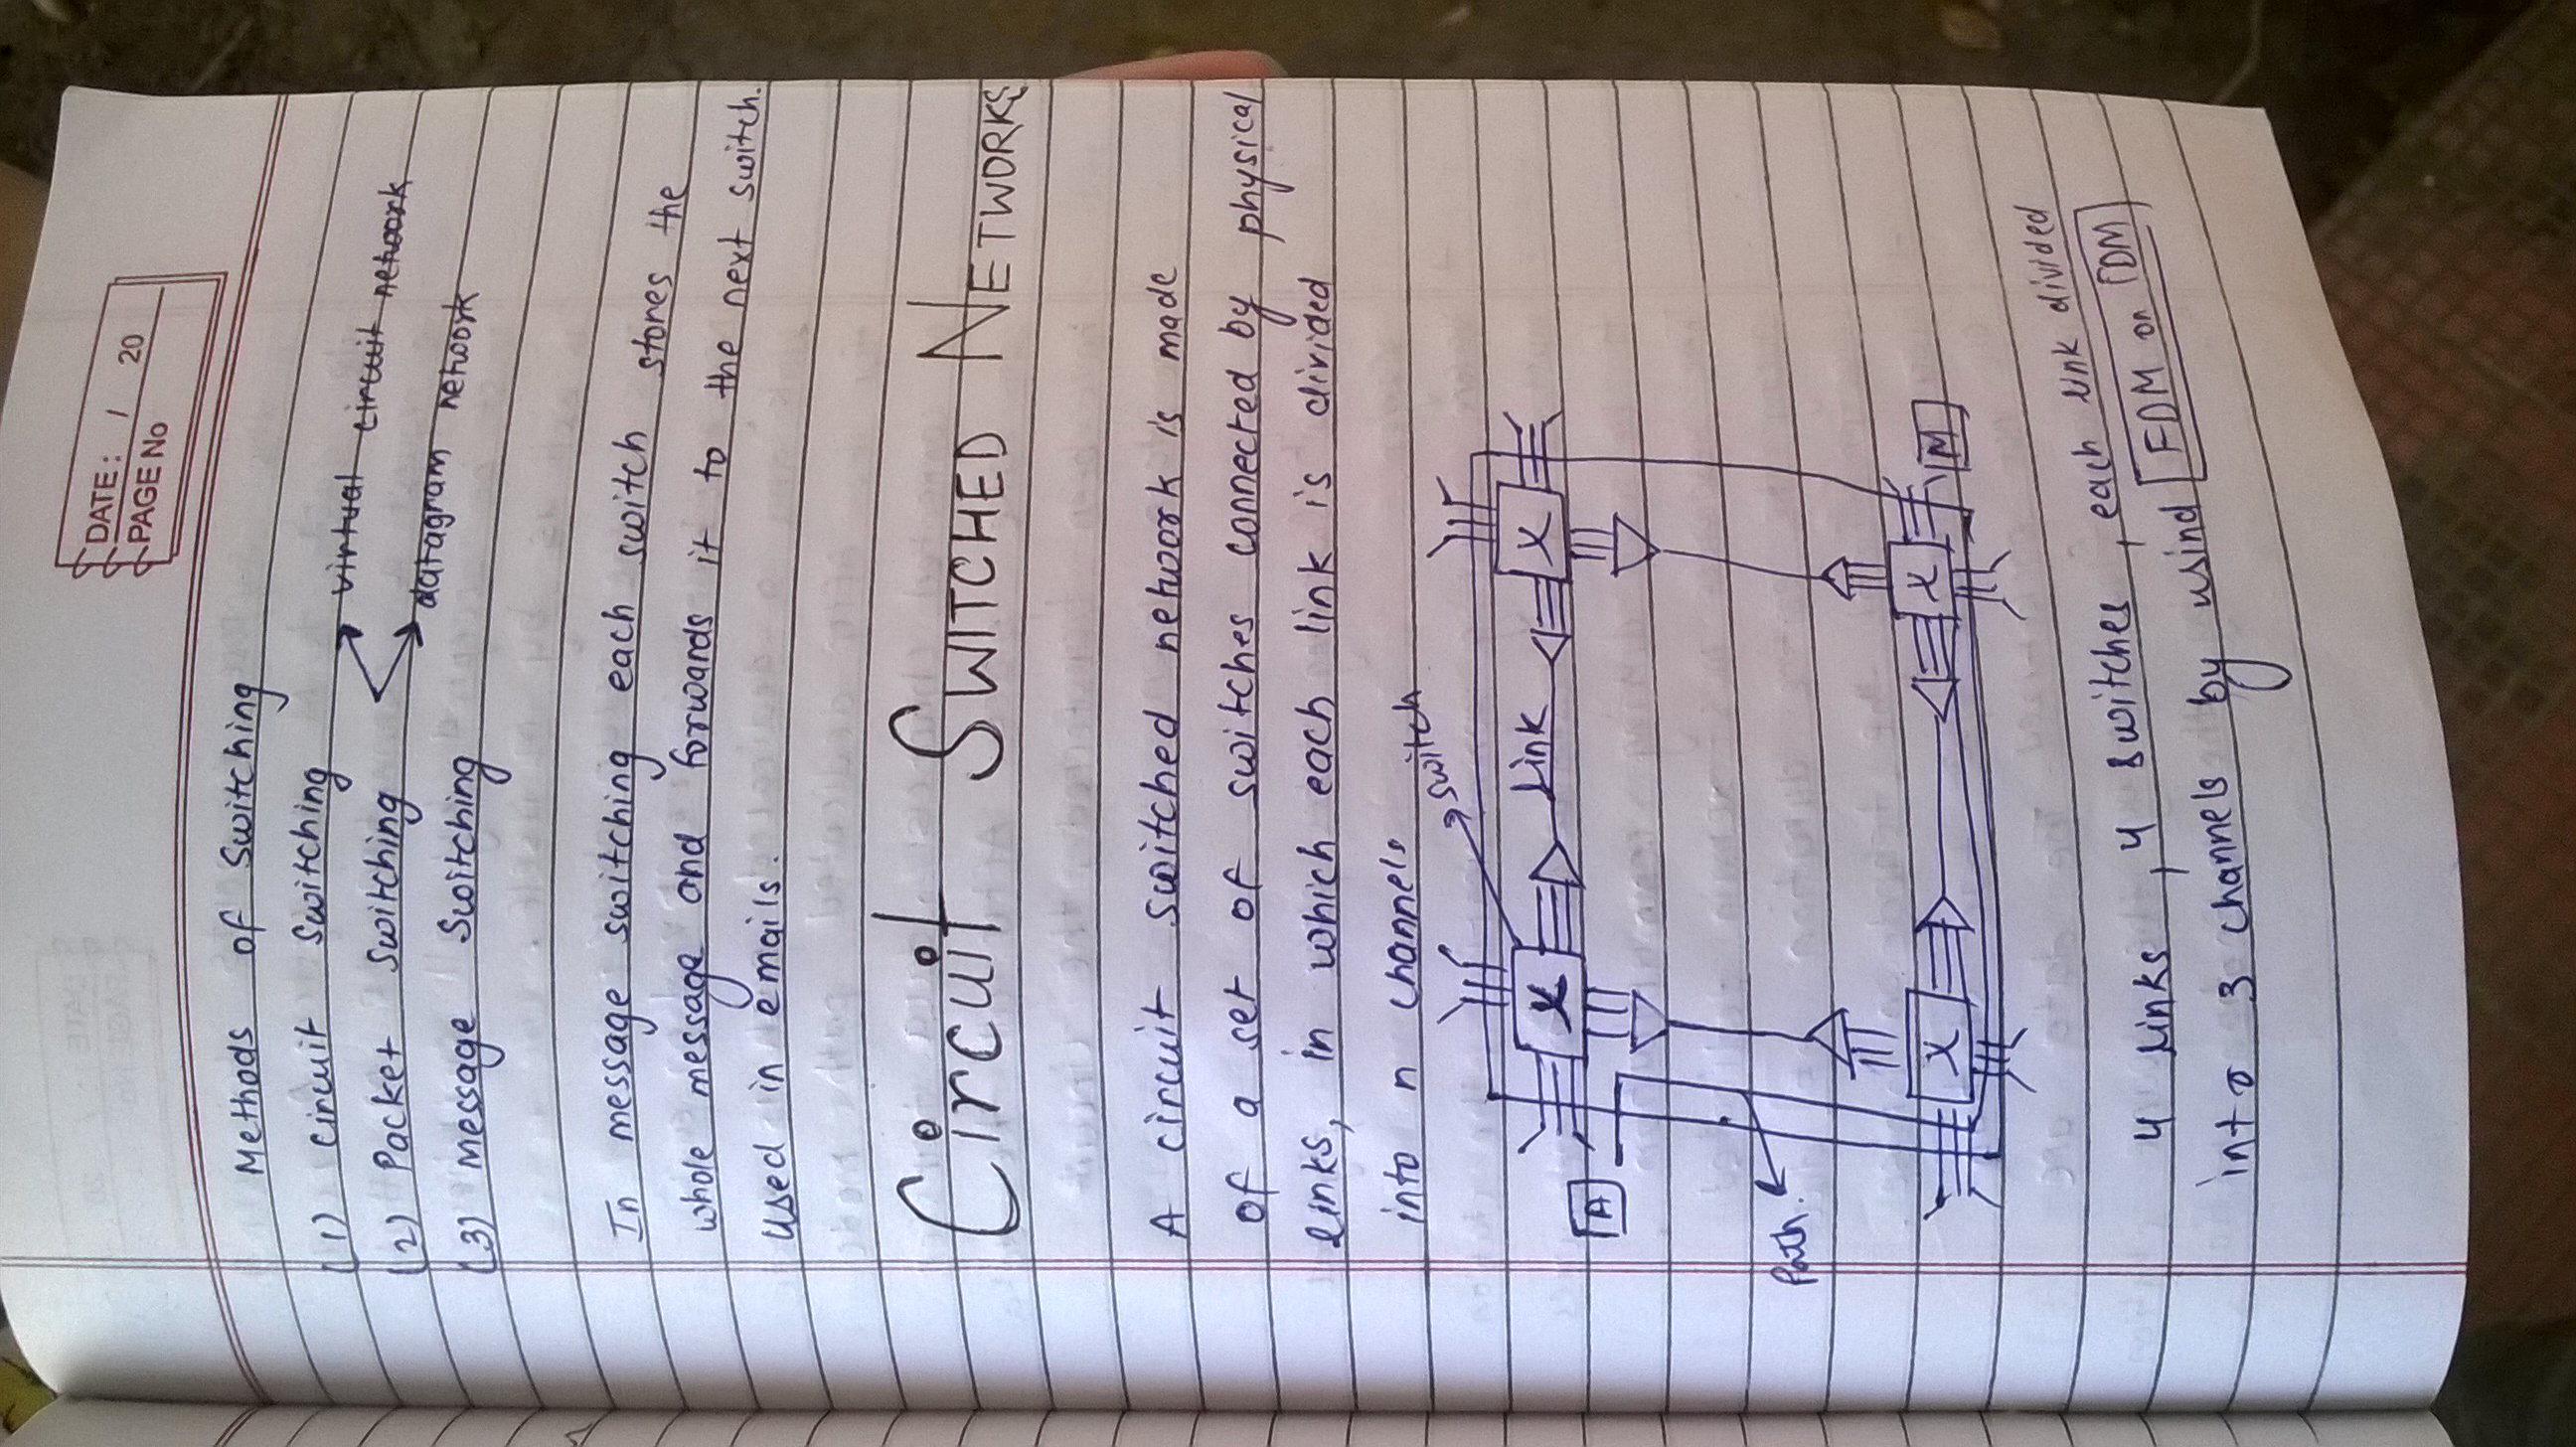 DATE: / 20
PAGE No
Methods of Switching
(1) circuit Switching
virtual circuit network
(2) Packet Switching
datagram network
(3) Message Switching
In message switching each switch stores the
whole message and forwards it to the next switch.
used in emails.
Circuit SWITCHED NETWORKS
A circuit switched network is made
of a set of switches connected by physical
links, in which each link is divided
into n channels
switch
X Link X
A
Path.
X X M
4 links, 4 switches, each link divided
into 3 channels by usind FDM or TDM